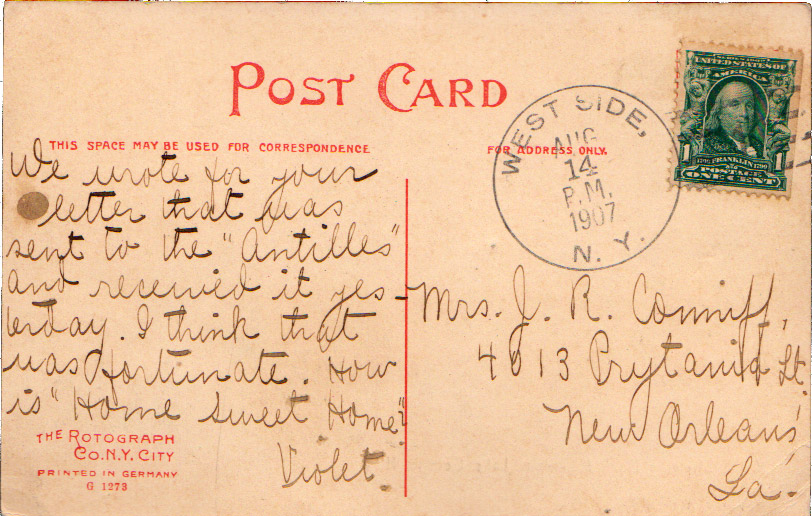 POST CARD
THIS SPACE MAY BE USED FOR CORRESPONDENCE
FOR ADDRESS ONLY.
We wrote for your
letter that was
sent to the "Antilles"
and received it yes-
terday. I think that
was fortunate. How
is "Home Sweet Home"?
Violet.
THE ROTOGRAPH
CO. N.Y. CITY
PRINTED IN GERMANY
G 1273
WEST SIDE,
AUG
14
P.M.
1907
N. Y.
UNITED STATES OF
AMERICA
FRANKLIN
1 POSTAGE 1
ONE CENT
Mrs. J. R. Conniff,
4013 Prytania St.
New Orleans,
La.